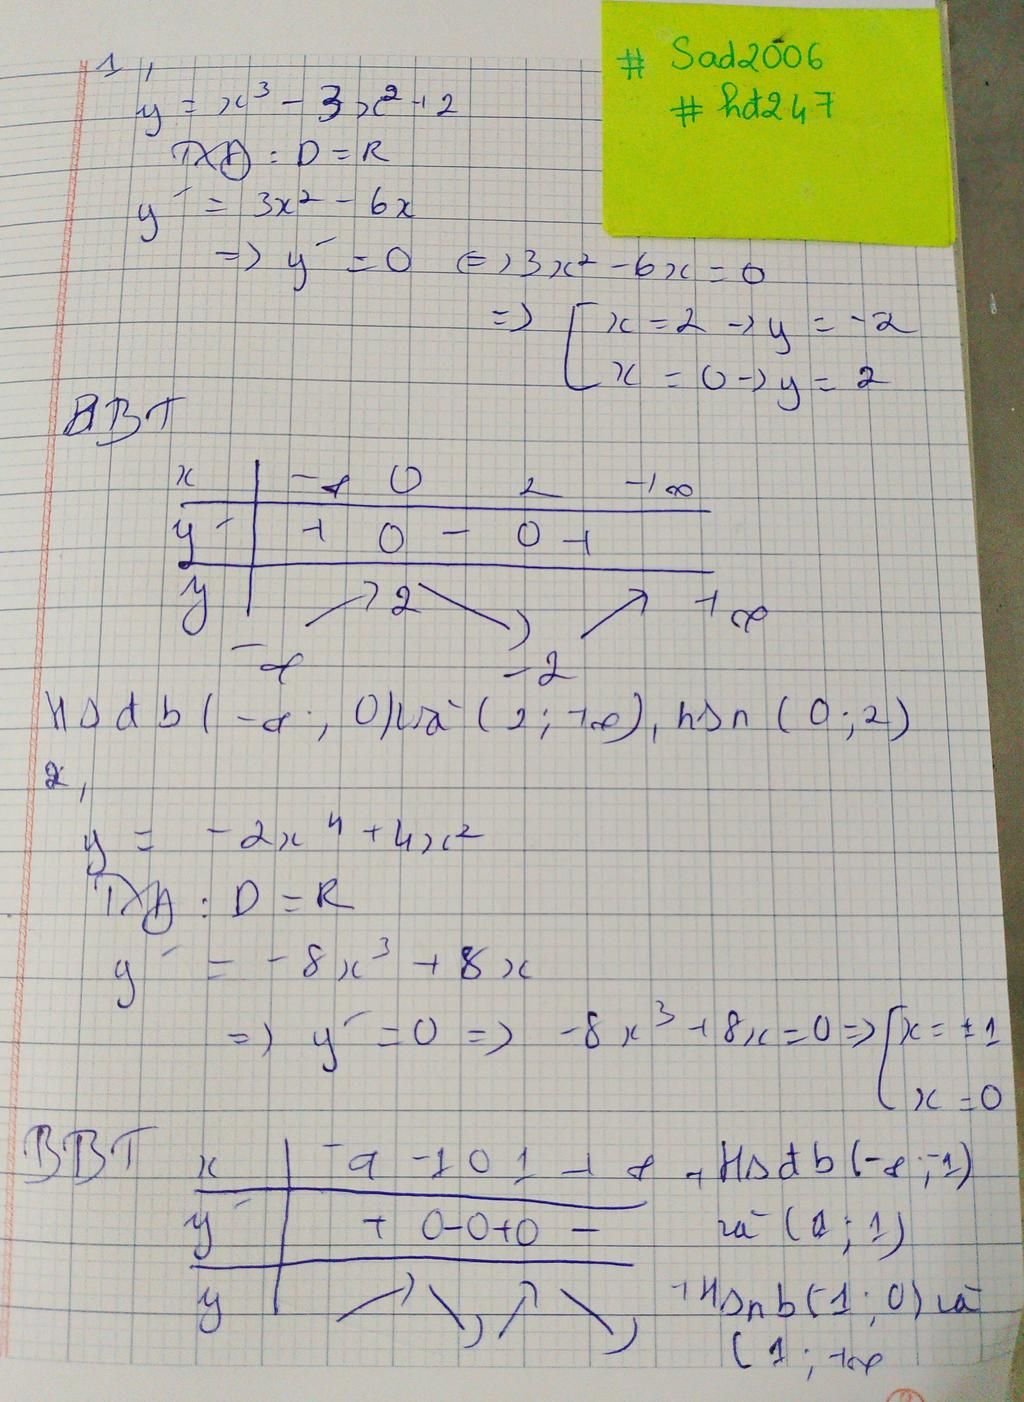 # Sad2006
# hđ247
1,
y = x³ - 3x² + 2
TXĐ : D = R
y' = 3x² - 6x
=> y' = 0 <=> 3x² - 6x = 0
=> [ x = 2 -> y = -2
x = 0 -> y = 2
BBT
x | -∞ 0 2 +∞
y' | + 0 - 0 +
y | 2 +∞
-∞ -2
HSđb (-∞; 0) và (2; +∞), hsn (0; 2)
2,
y = -2x⁴ + 4x²
TXĐ : D = R
y' = -8x³ + 8x
=> y' = 0 => -8x³ + 8x = 0 => [ x = ±1
x = 0
BBT
x | -∞ -1 0 1 +∞
y' | + 0 - 0 + 0 -
y |
+ HSđb (-∞; -1)
và ( ; 1)
+ HSnb (-1; 0) và
(1; +∞